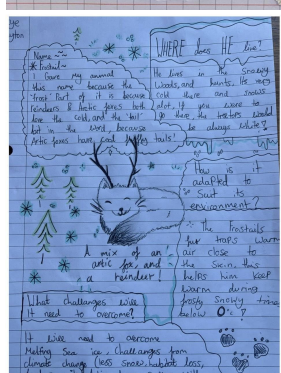 ye
yton
Name ~
* Frostail ~
Gave my animal
this name because the
'frost' Part of it is because
reindeers & Arctic foxes both
love the cold, and the 'tail'
bit in the word because
Artic foxes have cool tails!
WHERE does HE live?
He lives in the snowy
Woods, and hunts. He
cold there and snows
alot, if you were to
go there the treetops would
be always white!
How is it
adapted to
Suit its
environment?
The Frostails
fur traps warm
air close to
the skin, this
helps him keep
warm during
frosty snowy times
below 0°c!
A mix of an
artic fox, and
a reindeer!
What challanges will
It need to overcome?
It will need to overcome
Melting Sea ice, Challanges from
climate change (less snow, habitat loss,